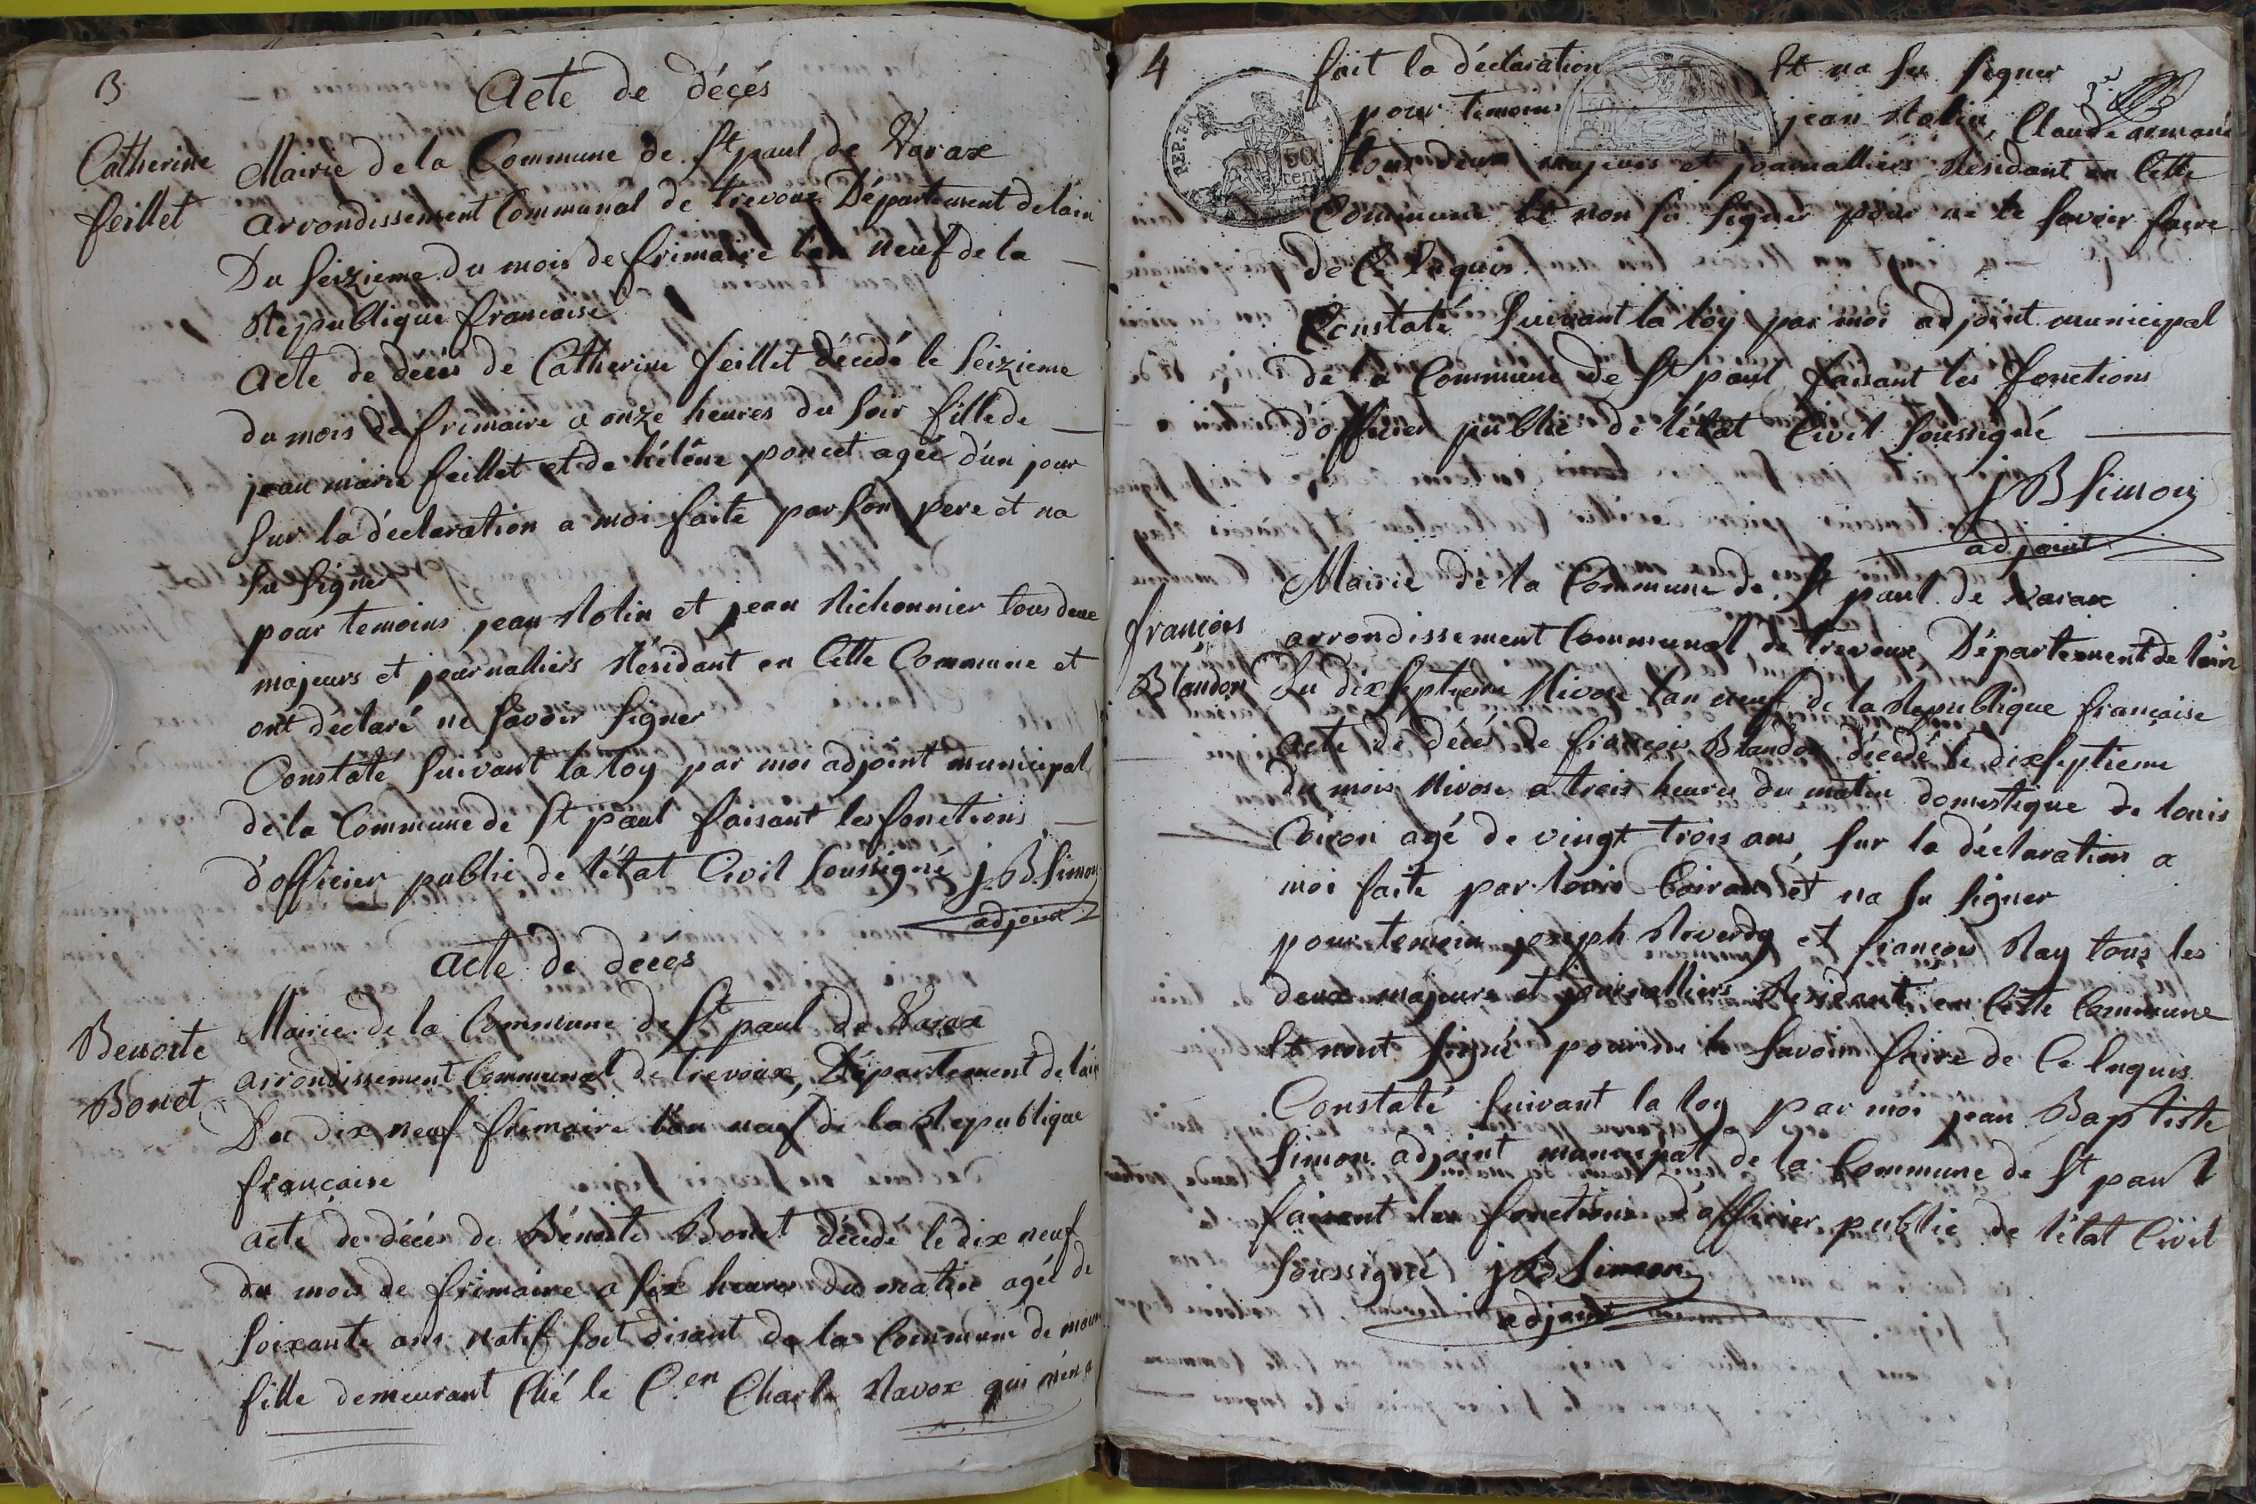 3
Acte de décés
Catherine
feillet
Mairie de la Commune de St paul de Varax
arrondissement Communal de trevoux Département de lain
Du Seizieme du mois de frimaire lan neuf de la
République francaise
Acte de décés de Catherine feillet décédé le Seizieme
du mois de frimaire a onze heures du soir fille de
jean marie feillet et de héléne poncet agée d'un jour
Sur la déclaration a moi faite par son pere et na
su signer
pour temoins jean Rolin et jean Richonnier tous deux
majeurs et journalliers Résidant en Cette Commune et
ont déclaré ne Savoir signer
Constaté Suivant la loy par moi adjoint municipal
de la Commune de St paul faisant les fonctions
d'officier public de l'état Civil soussigné j. B. Simon
adjoint
acte de décés
Benoite
Bonet
Mairie de la Commune de St paul de Varax
arrondissement Communal de trevoux, Département de lain
Du dix neuf frimaire lan neuf de la Republique
francaise
acte de décés de Bénoite Bonet décédé le dix neuf
du mois de frimaire a six heures du matin agée de
Soixante ans natif soit disant de la Commune de
fille demeurant Ché le Cen Charle Ravox qui
4
fait la déclaration Et na su signer
REP. FRA
50
cen
pour temoins jean Rolin, Claude
tous deux majeurs et journalliers Résidant en Cette
Commune Et non su signer pour ne le savoir faire
de Ce Enquis
Constaté Suivant la loy par moi adjoint municipal
de la Commune de St paul faisant les fonctions
d'officier public de l'état Civil soussigné
j B Simon
adjoint
Mairie de la Commune de St paul de Varax
françois
Blandon
arrondissement Communal de trevoux, Département de lain
Du dixseptieme Nivose lan neuf de la République française
acte de décés de françois Blandon décédé le dixseptieme
du mois Nivose a trois heures du matin domestique de louis
Coiron agé de vingt trois ans, Sur la déclaration a
moi faite par louis Coiron et na su signer
pour temoin joseph Reverdy et françois Ray tous les
deux majeurs et journalliers Residant en Cette Commune
Et nont signé pour ne le savoir faire de Ce Enquis
Constaté Suivant la loy par moi jean Baptiste
Simon adjoint municipal de la Commune de St paul
faisent les fonctions d'officier public de l'état Civil
Soussigné j B Simon
adjoint